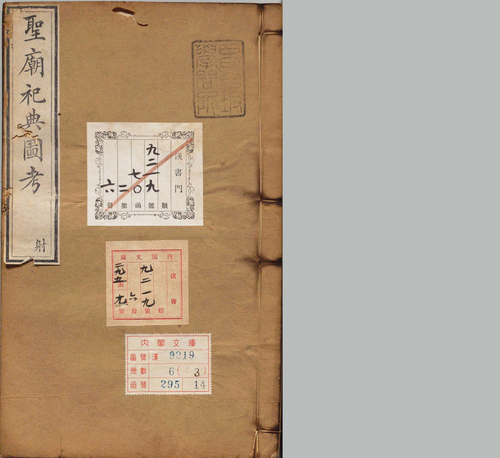 聖廟祀典圖考
射
昌平坂
學問所
漢書門
九二一九
七〇二
六
類號函架冊
內閣文庫
漢書
九二一九
六
內閣文庫
番號 漢 9219
冊數 6(3)
函號 295 14